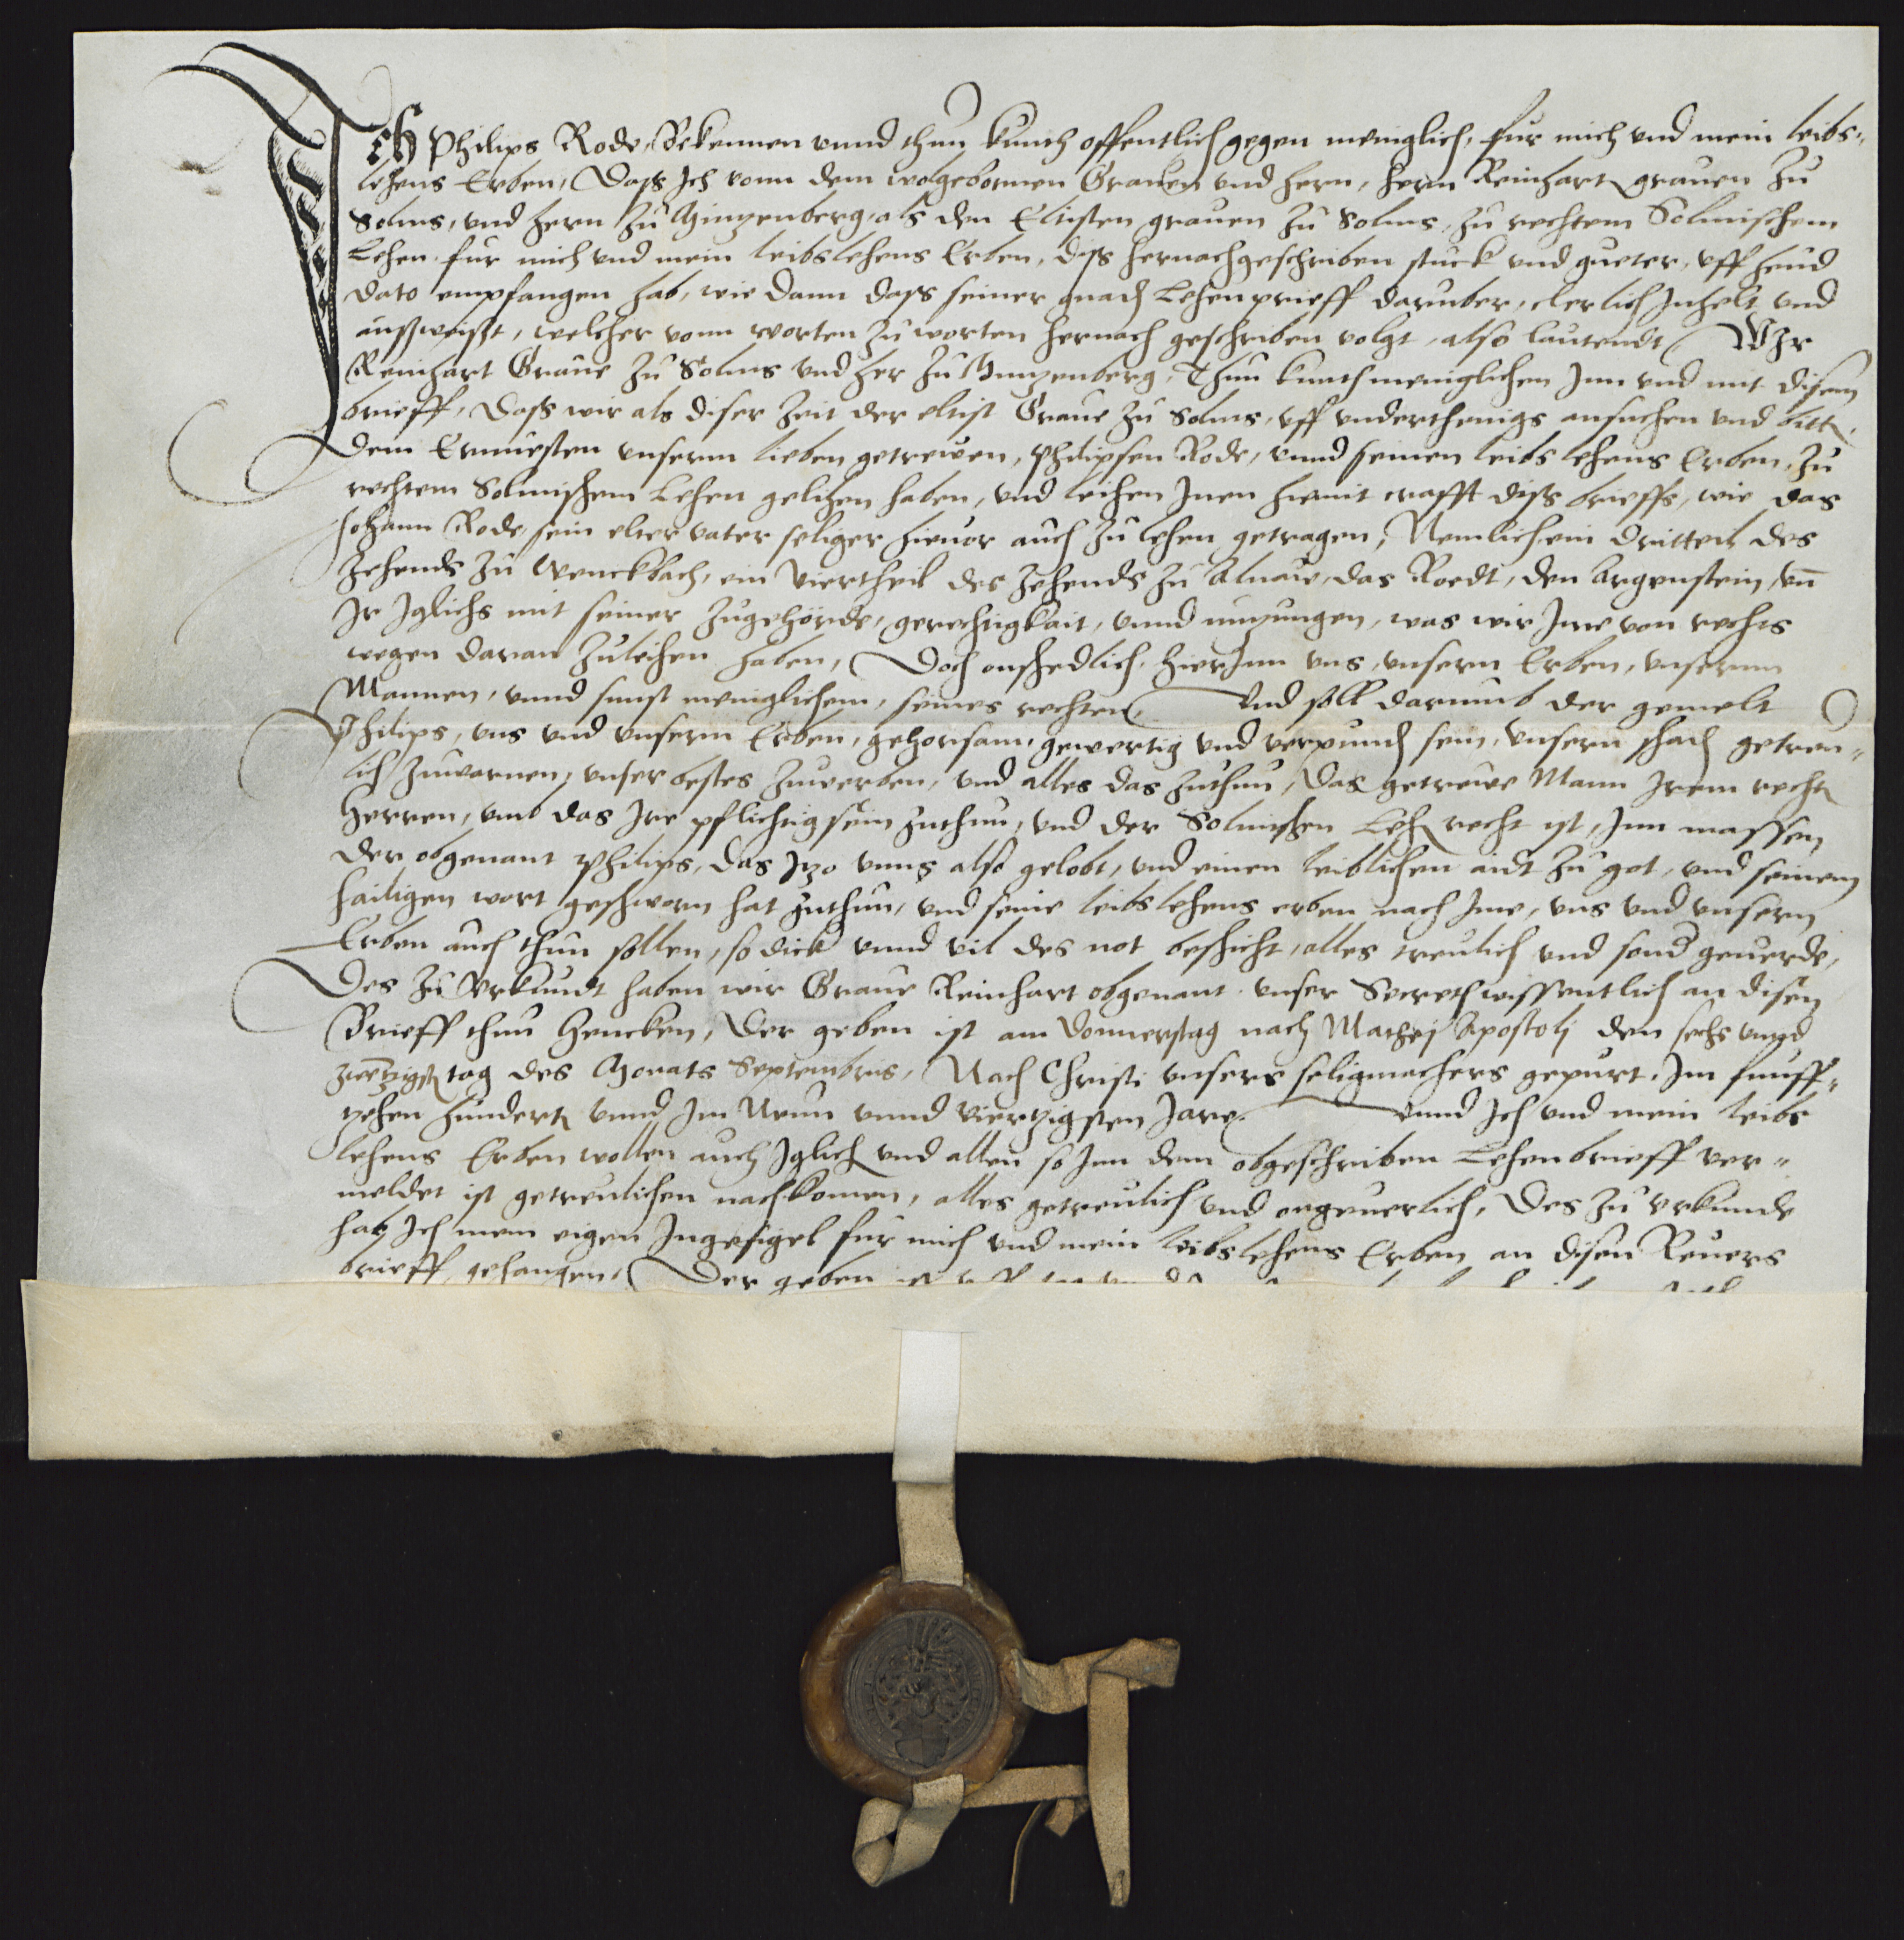 Ich Philips Rode, Bekennen vnnd thun kunth offentlich gegen meniglich, fur mich vnd mein leibs-
lehens Erben, Dass Ich vonn dem wolgebornnen Grauen vnd hern, hern Reinhart grauen zu
Solms, vnd hern zu Mintzenberg, als den Eltisten grauen zu Solms, zu rechtem Solmischem
Lehen fur mich vnd mein leibslehens Erben, diss hernachgeschriben stuck vnd gueter, vff heud
dato empfangen hab, wie dann dass seiner gnad Lehenprieff daruber, clerlich Inhelt vnd
aussweisst, welcher vonn worten zu worten hernach geschriben volgt, also lautendt, WIr
Reinhart Graue zu Solms vnd her zu Mintzenberg, Thun kunth meniglichen Inn vnd mit disem
brieff, Dass wir als diser zeit der eltist Graue zu Solms, vff vnderthenigs ansuchen vnd bitt,
dem Ernuesten vnserm lieben getrewen, Philipsen Rode, vnnd seinen leibs lehens Erben, zu
rechtem Solmischem Lehen gelihen haben, vnd leihen Inen hiemit crafft diss brieffs, wie das
Johann Rode sein elter vater seliger hieuor auch zu lehen getragen, Nemlich ein dritteil des
Zehends zu Wenckbach, ein Viertheil des Zehends zu Alnaue, das Roedt, den Argenstein, vn̄
Ir Iglichs mit seiner zugehorde, gerechtigkait, vnnd nutzungen, was wir Ime von rechts
wegen daran zuleihen haben, Doch onschedlich hierInn vns, vnsern Erben, vnsernn
Mannen, vnnd sunst meniglichem, seines rechten, Vnd soll darumb der gemelt
Philips, vns vnd vnsern Erben, gehorsam, gewertig vnd verpund sein, vnsern schad getreu-
lich zuwarnen, vnser bestes zuwerben, vnd alles das zuthun, das getrewe Mann Irem recht
Herren, vmb das Ire pflichtig sein zuthun, vnd der Solmischen Leh recht ist, Inn massen
der obgenant Philips, das Itzo vnns also gelobt, vnd einen leiblichen aidt zu got, vnd seinem
hailigen wort geschworn hat zuthun, vnd seine leibs lehens erben nach Ime, vns vnd vnsern
Erben auch thun sollen, so dick vnnd vil des not beschicht, alles treulich vnd sond geuerde,
Des zu Vrkundt haben wir Graue Reinhart obgenant vnser Secreth wissentlich an disen
Brieff thun hencken, Der geben ist am donnerstag nach Mathej Apostolj den sechs vnnd
zwentzigst tag des Monats Septembris, Nach Christi vnsers seligmachers gepurt, Im funff-
zehen hundert vnnd Im Neun vnnd viertzigsten Jare. Vnnd Ich vnd mein leibs
lehens Erben wollen auch Iglich vnd allen so Inn dem obgeschriben Lehenbrieff ver-
meldet ist getreulichen nachkomen, alles getreulich vnd ongeuerlich, Des zu vrkunde
hab Ich mein eigen Ingesigel fur mich vnd mein leibslehens Erben an disen Reuers
brieff gehangen, Der geben